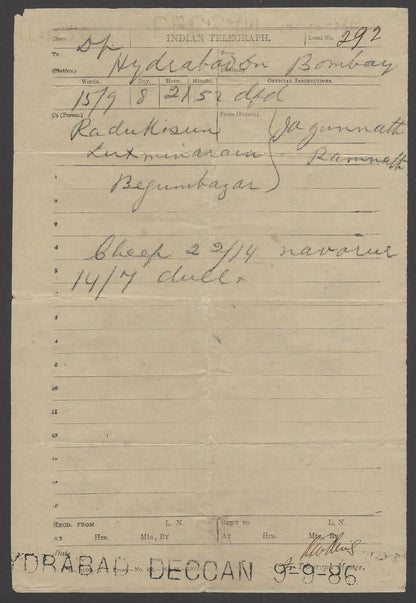 Class. Dp INDIAN TELEGRAPH. Local No. 292
To From
(Station) Hydrabad Dn (Station) Bombay
Words. Day. Hour. Minute. OFFICIAL INSTRUCTIONS.
15/9 8 21 52 dfd
To (Person) From (Person)
Radukisun Jagunnath
Luxminarain Ramnath
Begumbazar
Cheep 2 2/14 navorur
14/7 dull.
RECD. FROM L. N. SENT TO L. N.
AT Hrs. Mts, BY AT Hrs. Mts., BY
Date
In Telegraph Master.
HYDRABAD DECCAN 9-9-86